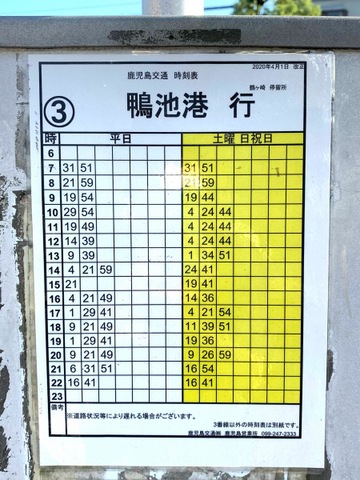 2020年4月1日 改正
鹿児島交通 時刻表
鶴ヶ崎 停留所
③ 鴨池港 行
時 平日 土曜 日祝日
6
7 31 51 31 51
8 21 59 21 59
9 19 54 19 44
10 29 54 4 24 44
11 19 49 4 24 44
12 14 39 4 24 44
13 9 39 1 34 51
14 4 21 59 24 41
15 21 19 41
16 4 21 49 14 36
17 1 29 41 4 21 54
18 9 21 49 11 39 51
19 1 29 41 19 36
20 9 21 49 9 26 59
21 6 31 51 16 54
22 16 41 16 41
23
備考 ※道路状況等により遅れる場合がございます。
3番線以外の時刻表は別紙です。
鹿児島交通㈱ 鹿児島営業所 099-247-2333